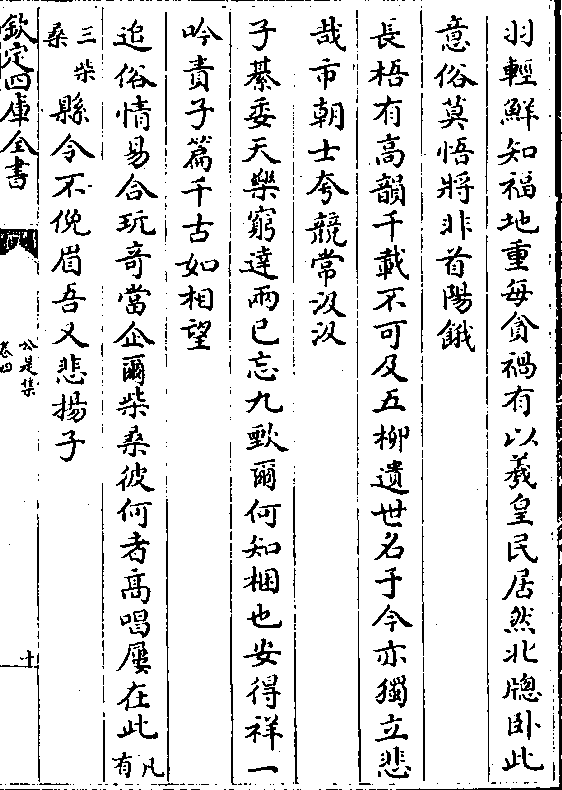 羽輕鮮知福地重每貪禍有以羲皇民居然北牕卧此
意俗莫悟將非首陽餓
長梧有高韻千載不可及五柳遺世名于今亦獨立悲
哉市朝士夸競常汲汲
子綦委天樂窮達兩已忘九歅爾何知梱也安得祥一
吟責子篇千古如相望
追俗情易合玩奇當企爾柴桑彼何者髙唱屢在此凡有
三柴桑縣令不俛眉吾又悲揚子
欽定四庫全書
公是集
卷四
十